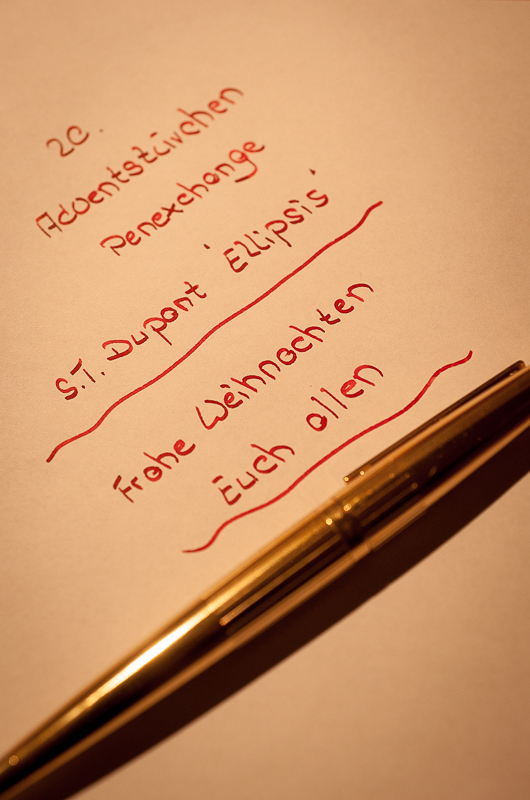 20.
Adventstürchen
Penexchange
S.T. Dupont 'Ellipsis'
Frohe Weihnachten
Euch allen